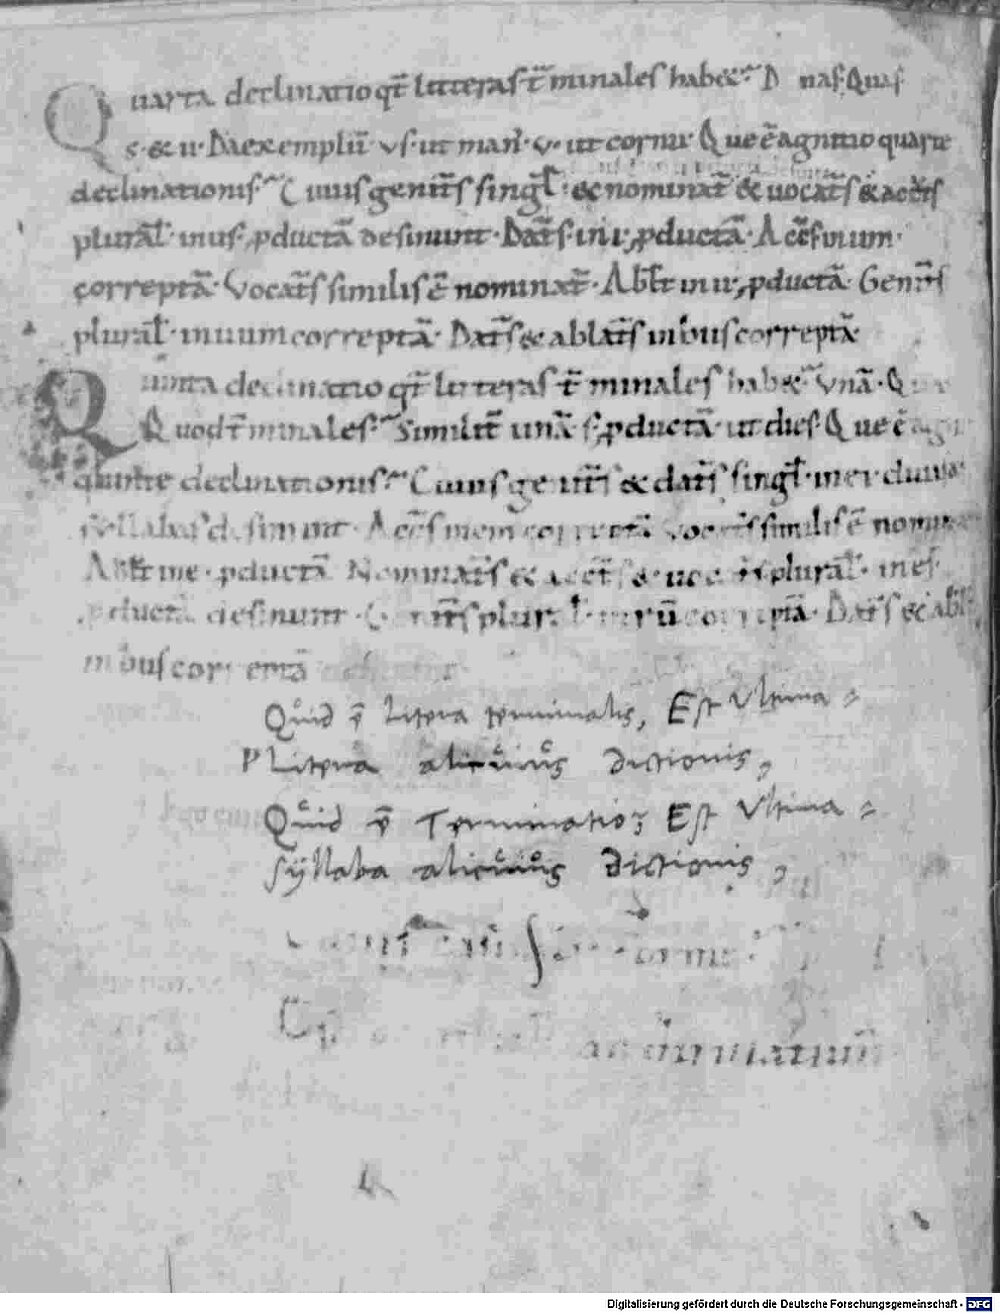 Quarta declinatio qt̄ litteras t̄minales hab& D nas. Quas
s. & u. Da exemplū. us. ut man⁹. u. ut cornu. Que ē agnitio quarte
declinationis. Cuius genit̄s singl̄. & nominat̄ & uocat̄s & acc̄s
plural̄. in us. ꝓductā desinunt. Dat̄s. in i. ꝓductā. Acc̄s in um.
correptā. Vocat̄s similis ē nominat̄. Abl̄t in u. ꝓductā. Genit̄s
plural̄. in uum correptā. Dat̄s & ablat̄s in bus correptā
Quinta declinatio qt̄ litteras t̄minales hab& Vnā. Q
Quod t̄minales. Similit̄ unā s. ꝓductā. ut dies. Que ē agni
quinte declinationis. Cuius genit̄s & dat̄s singl̄. in ei diuisas
syllabas desinunt. Acc̄s in em correptā Vocat̄s similis ē nomin
Abl̄t in e. ꝓductā. Nominat̄s & acc̄t̄s & uocat̄s plural̄. in es.
ꝓductā desinunt. Genit̄s plural̄. in erū correptā. Dat̄s & abl̄t
in bus correptā
Quid ē litera terminalis, Est Vltima
Litera alicuius dictionis,
Quid ē Terminatio? Est Vltima
syllaba alicuius dictionis,
Digitalisierung gefördert durch die Deutsche Forschungsgemeinschaft - DFG